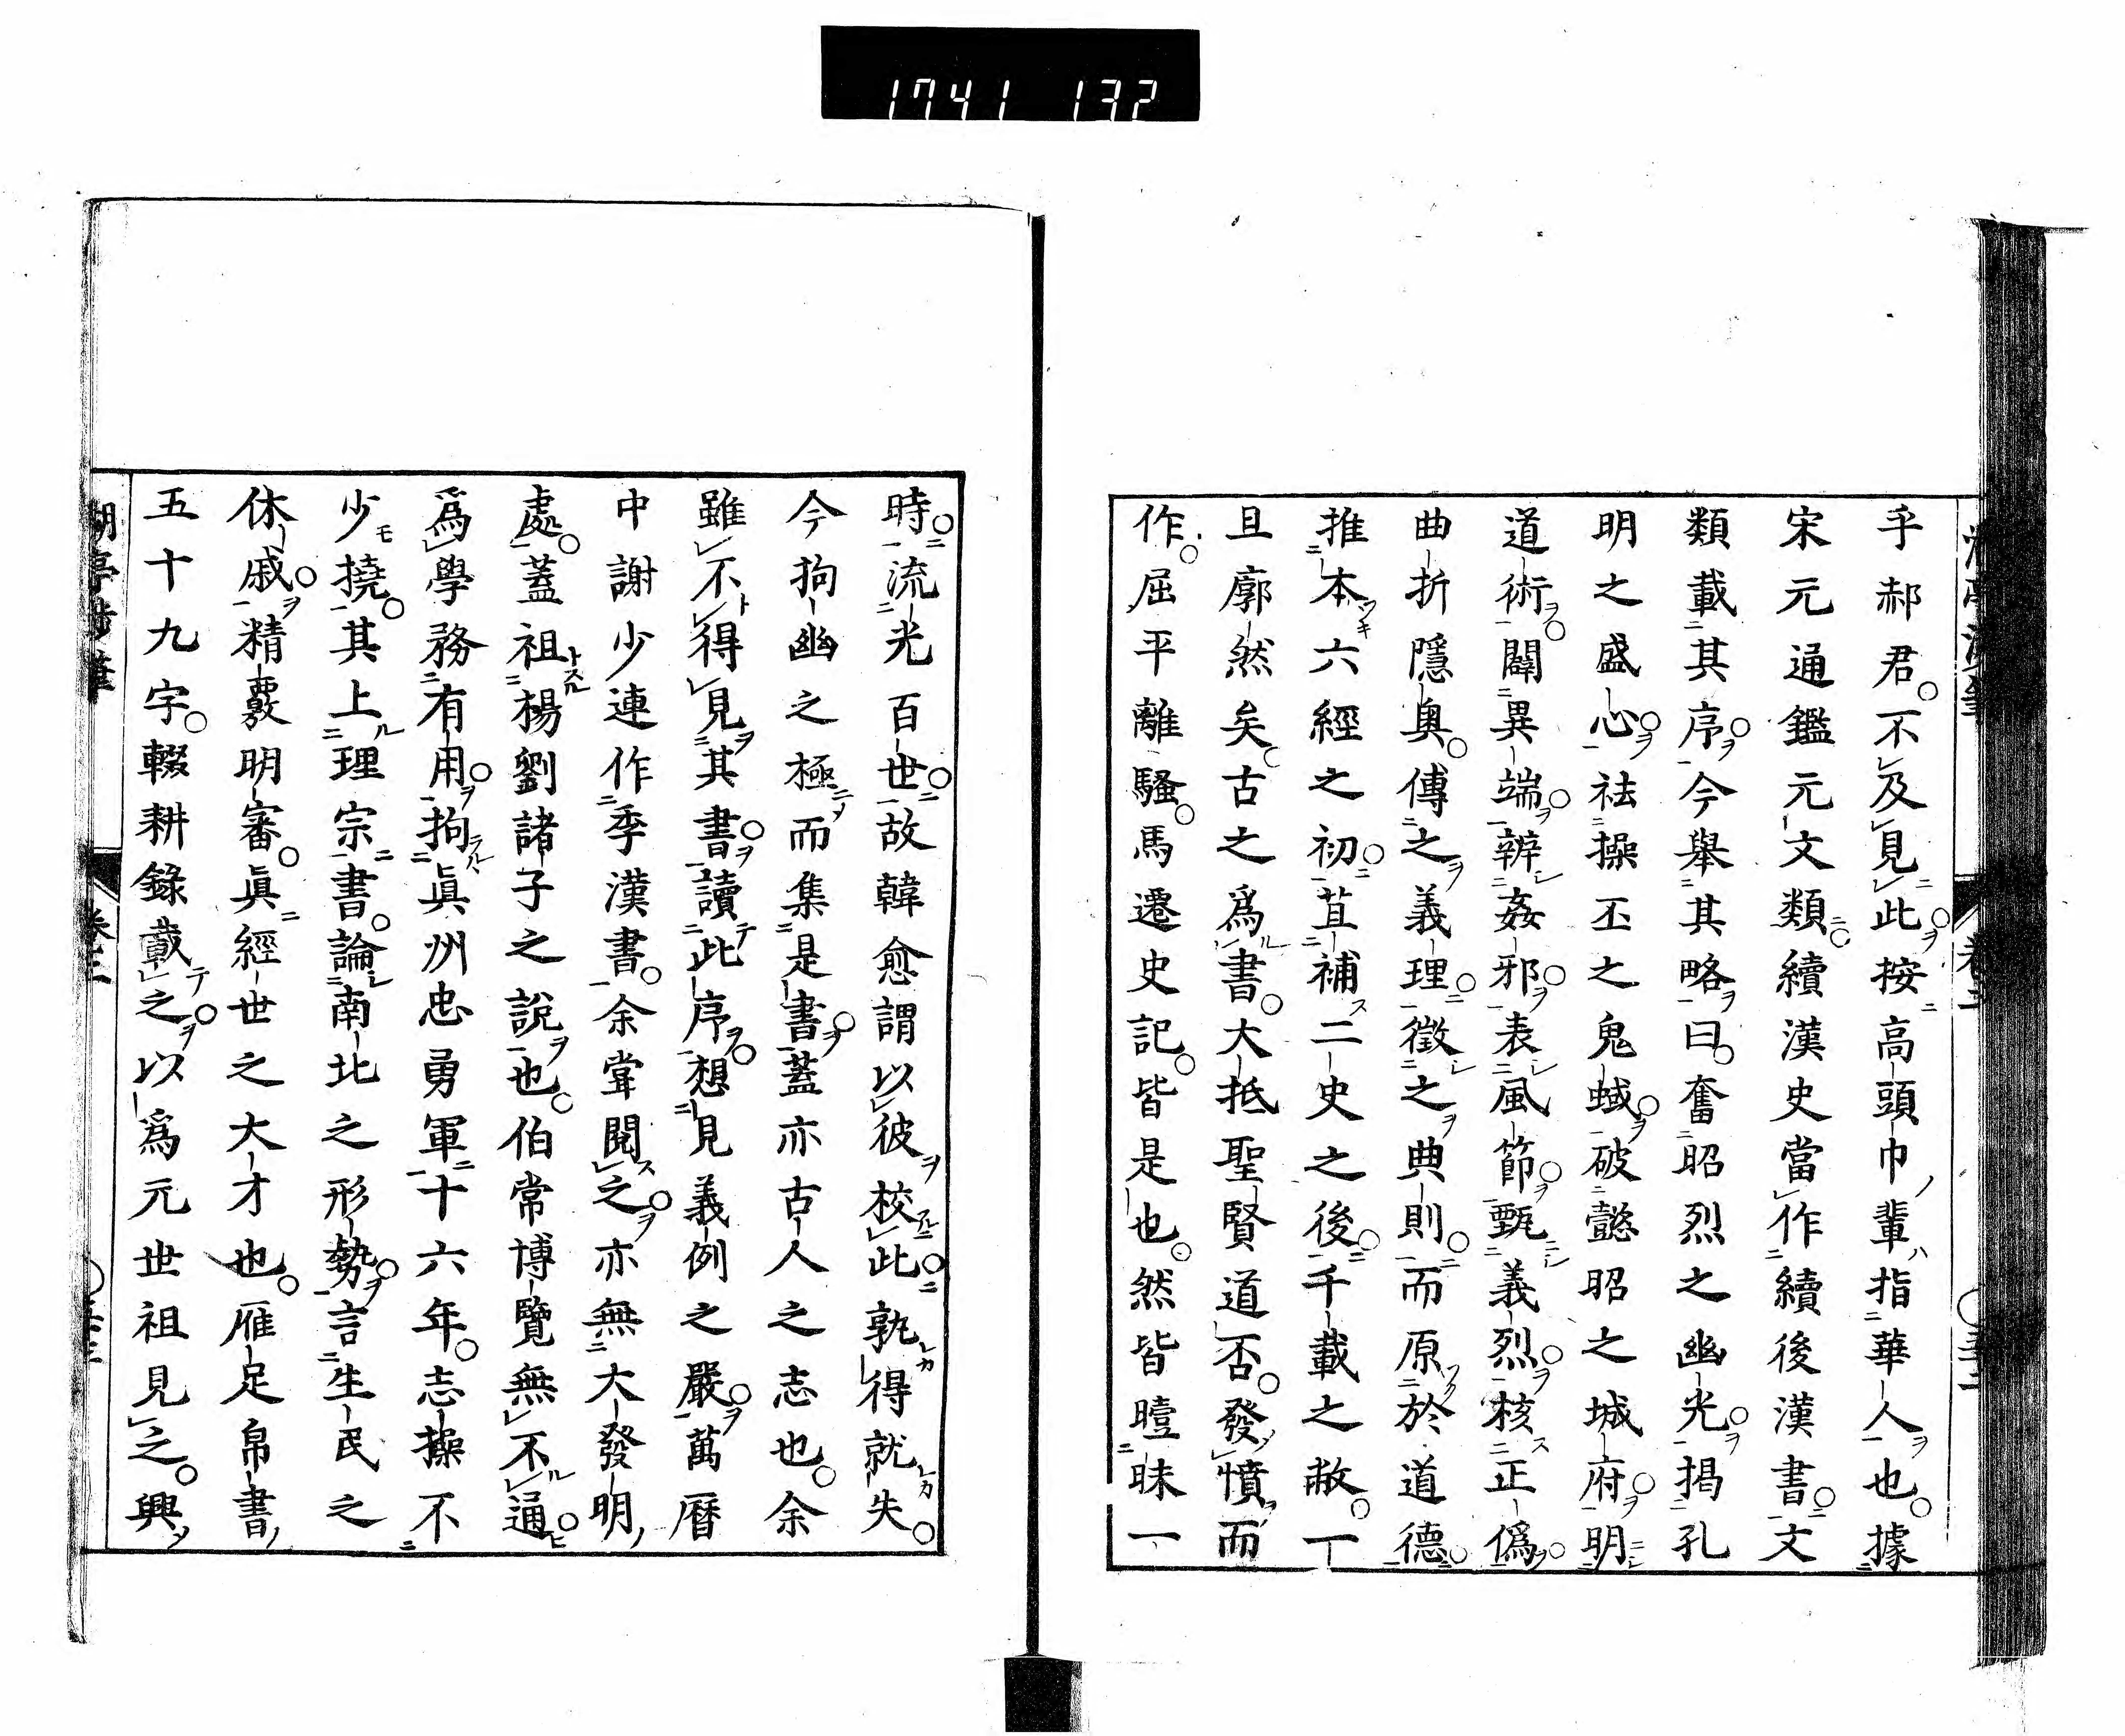 1741 132
乎郝君不及見此按高頭巾輩指華人也據
宋元通鑑元文類續漢史當作續後漢書文
類載其序今舉其略曰奮昭烈之幽光揭孔
明之盛心袪操丕之鬼蜮破懿昭之城府明
道術闢異端辨姦邪表風節甄義烈核正僞
曲折隱奥傳之義理徵之典則而原於道德
推本六經之初苴補二史之後千載之敝一
旦廓然矣古之爲書大抵聖賢道否發憤而
作屈平離騷馬遷史記皆是也然皆曀昧一
時流光百世故韓愈謂以彼校此孰得就失
今拘幽之極而集是書蓋亦古人之志也余
雖不得見其書讀此序想見義例之嚴萬曆
中謝少連作季漢書余嘗閲之亦無大發明
處蓋祖楊劉諸子之說也伯常博覽無不通
爲學務有用拘眞州忠勇軍十六年志操不
少撓其上理宗書論南北之形勢言生民之
休戚精覈明審眞經世之大才也雁足帛書
五十九字輟耕錄載之以爲元世祖見之興